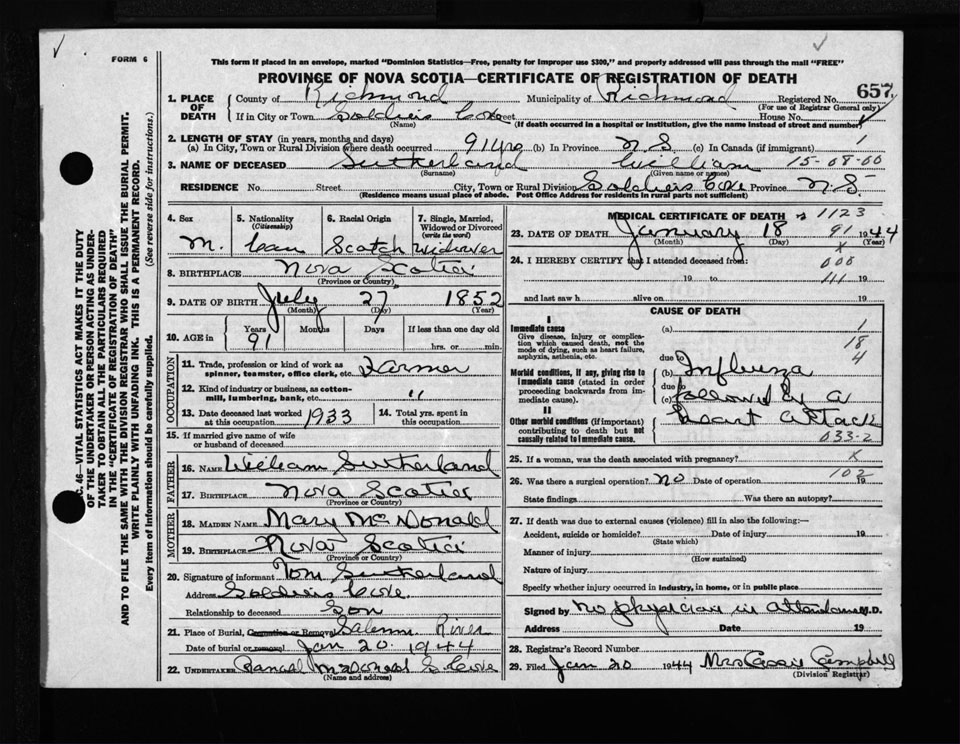 FORM 6
This form if placed in an envelope, marked "Dominion Statistics—Free, penalty for improper use $300," and properly addressed will pass through the mail "FREE"
PROVINCE OF NOVA SCOTIA—CERTIFICATE OF REGISTRATION OF DEATH
C. 46—VITAL STATISTICS ACT MAKES IT THE DUTY
OF THE UNDERTAKER OR PERSON ACTING AS UNDER-
TAKER TO OBTAIN ALL THE PARTICULARS REQUIRED
IN THE "CERTIFICATE OF REGISTRATION OF DEATH"
AND TO FILE THE SAME WITH THE DIVISION REGISTRAR WHO SHALL ISSUE THE BURIAL PERMIT.
WRITE PLAINLY WITH UNFADING INK. THIS IS A PERMANENT RECORD.
Every item of information should be carefully supplied. (See reverse side for instructions.)
1. PLACE OF DEATH County of Richmond Municipality of Richmond Registered No. 657
(For use of Registrar General only)
If in City or Town Soldiers Cove House No.
(Name) (If death occurred in a hospital or institution, give the name instead of street and number)
2. LENGTH OF STAY (in years, months and days) 1
(a) In City, Town or Rural Division where death occurred 91 yrs (b) In Province N.S. (c) In Canada (if immigrant)
3. NAME OF DECEASED Sutherland William 15-08-00
(Surname) (Given name or names)
RESIDENCE No. Street City, Town or Rural Division Soldiers Cove Province N.S.
(Residence means usual place of abode. Post Office Address for residents in rural parts not sufficient)
4. Sex M.
5. Nationality (Citizenship) Can
6. Racial Origin Scotch
7. Single, Married, Widowed or Divorced (write the word) Widower
8. BIRTHPLACE Nova Scotia
(Province or Country)
9. DATE OF BIRTH July 27 1852
(Month) (Day) (Year)
10. AGE in Years Months Days If less than one day old
91 hrs. or min.
OCCUPATION
11. Trade, profession or kind of work as spinner, teamster, office clerk, etc. Farmer
12. Kind of industry or business, as cotton-mill, lumbering, bank, etc. "
13. Date deceased last worked at this occupation 1933
14. Total yrs. spent in this occupation
15. If married give name of wife or husband of deceased
FATHER
16. NAME William Sutherland
17. BIRTHPLACE Nova Scotia
(Province or Country)
MOTHER
18. MAIDEN NAME Mary McDonald
19. BIRTHPLACE Nova Scotia
(Province or Country)
20. Signature of informant Tom Sutherland
Address Soldiers Cove.
Relationship to deceased Son
21. Place of Burial, Cremation or Removal Salem River
Date of burial or removal Jan 20 1944
22. UNDERTAKER MacDonald S. Cove
(Name and address)
MEDICAL CERTIFICATE OF DEATH 1123
23. DATE OF DEATH January 18 91 1944
(Month) (Day) (Year)
X
24. I HEREBY CERTIFY that I attended deceased from: 000
19 to 111 19
and last saw h alive on 19
CAUSE OF DEATH
I
Immediate cause (a) 1
Give disease, injury or complication which caused death, not the mode of dying, such as heart failure, asphyxia, asthenia, etc. 18
due to 4
Morbid conditions, if any, giving rise to immediate cause (stated in order proceeding backwards from immediate cause). (b) Influenza
due to
(c) followed by a
II
Other morbid conditions (if important) contributing to death but not causally related to immediate cause. heart attack
033-2
25. If a woman, was the death associated with pregnancy? X
26. Was there a surgical operation? no Date of operation 102 19
State findings Was there an autopsy?
27. If death was due to external causes (violence) fill in also the following:—
Accident, suicide or homicide? Date of injury 19
(State which)
Manner of injury
(How sustained)
Nature of injury
Specify whether injury occurred in industry, in home, or in public place
Signed by no physician in attendance M.D.
Address Date 19
28. Registrar's Record Number
29. Filed Jan 20 1944 Mrs Cassie Campbell
(Division Registrar)